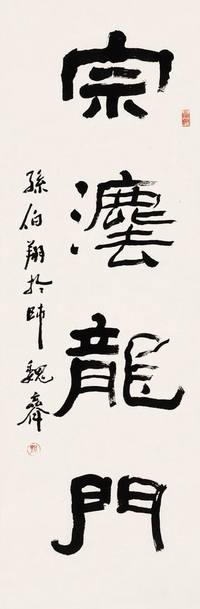 宗灋龍門
孫伯翔於師魏齋